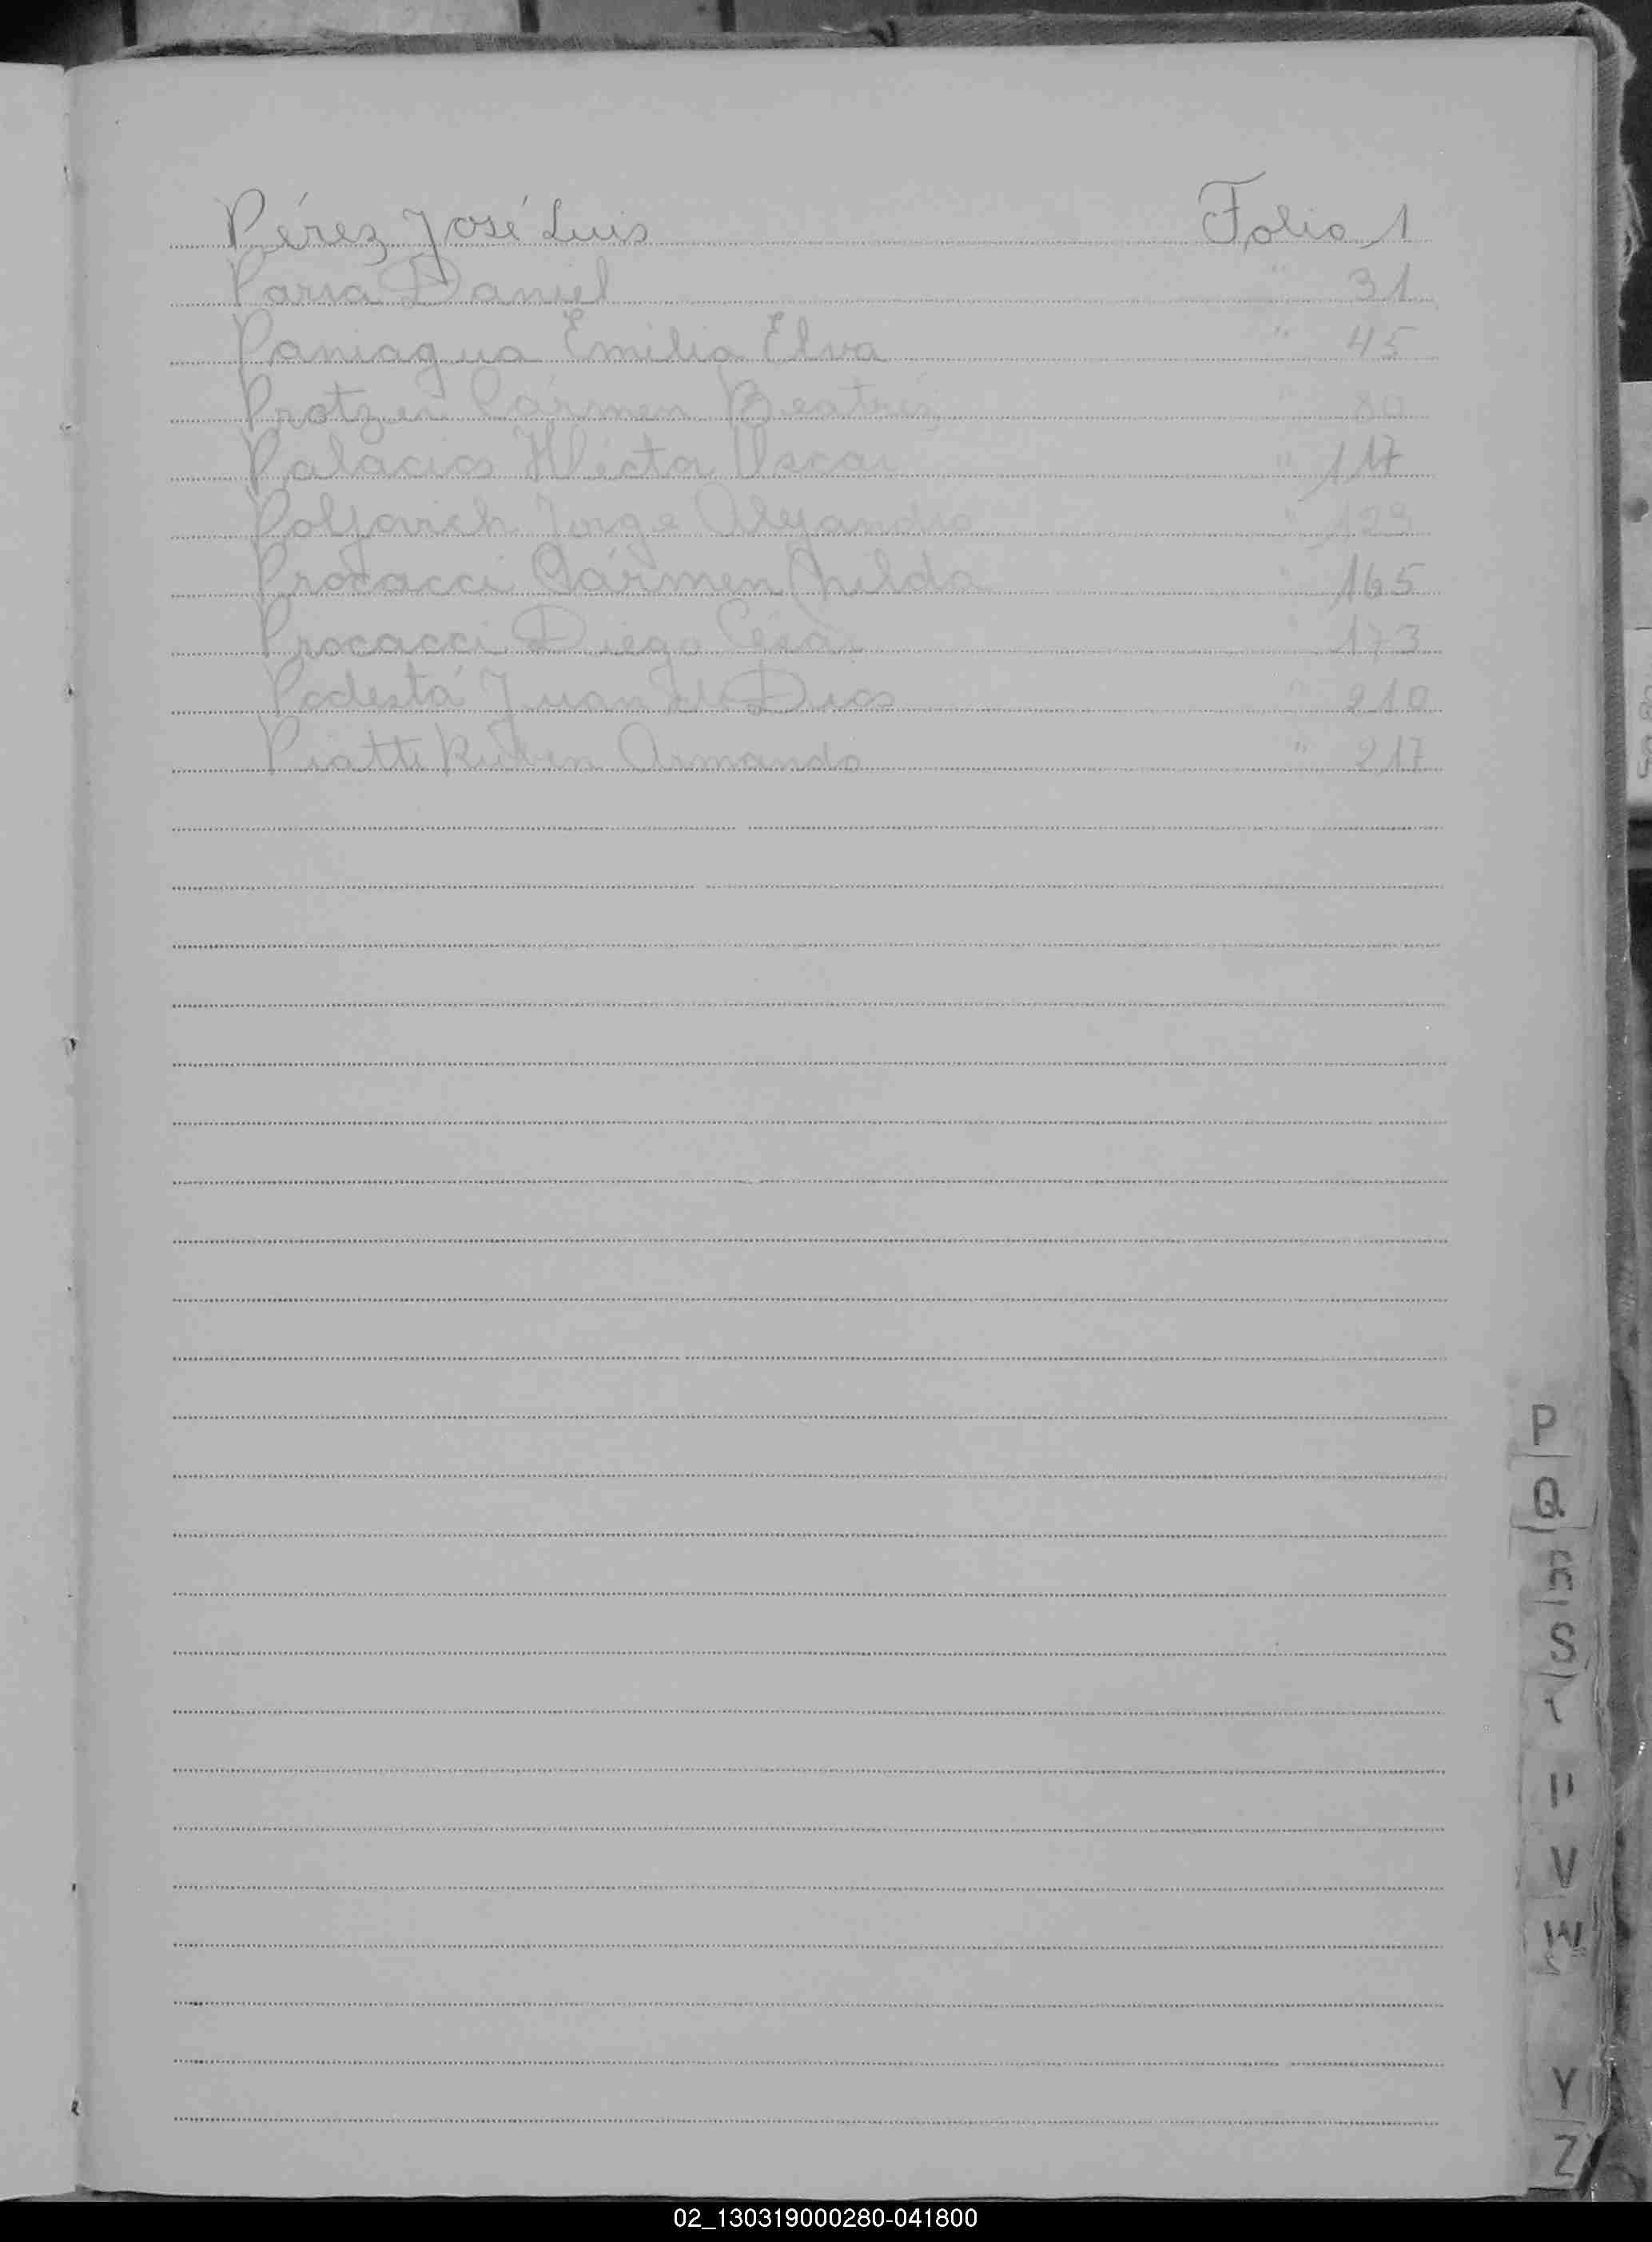 Pérez José Luis Folio 1
Paria Daniel " 31
Paniagua Emilia Elva " 45
Protzer Cármen Beatriz " 80
Palacios Héctor Oscar " 117
Poljovich Jorge Alejandro " 129
Procacci Cármen Nilda " 165
Procacci Diego César " 173
Podestá Juan de Dios " 210
Piatti Rubén Armando " 217
P
Q
R
S
V
W
Y
Z
02_130319000280-041800